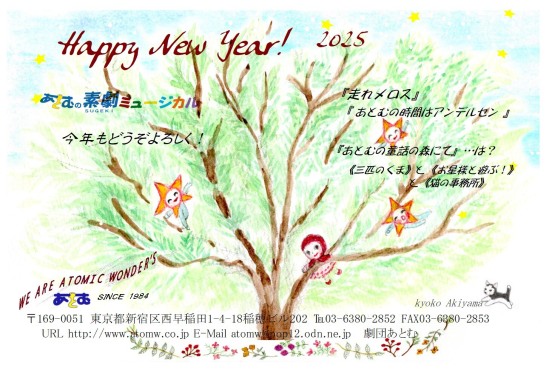 Happy New Year! 2025
あとむの素劇ミュージカル
SUGEKI
今年もどうぞよろしく！
『走れメロス』
『あとむの時間はアンデルセン 』
『あとむの童話の森にて』…は？
《三匹のくま》と《お星様と遊ぶ！》
と《猫の事務所》
WE ARE ATOMIC WONDER'S
あとむ SINCE 1984
kyoko Akiyama
〒169-0051 東京都新宿区西早稲田1-4-18稲穂ビル202 ℡03-6380-2852 FAX03-6380-2853
URL http://www.atomw.co.jp E-Mail 劇団あとむ